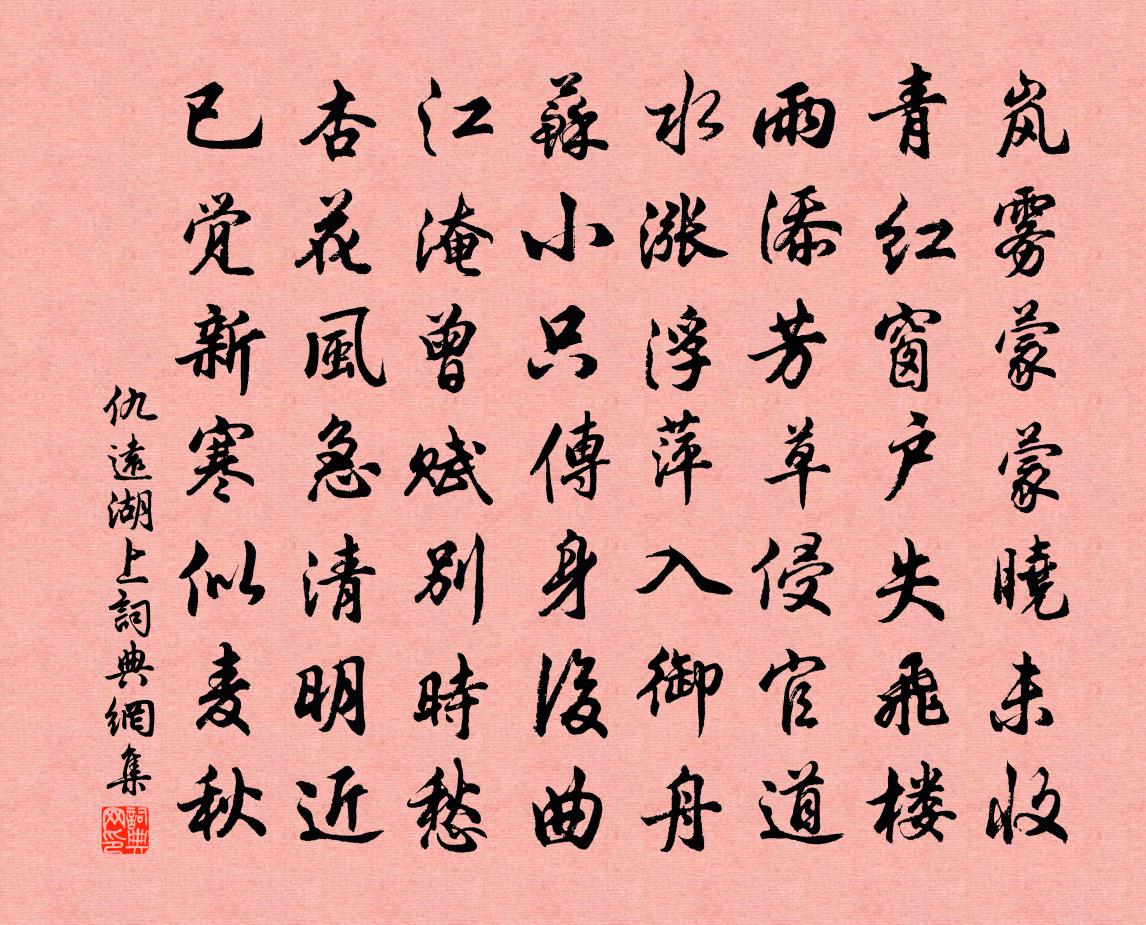 岚雾蒙蒙曉未收
青红窗户失飛楼
雨添芳草侵官道
水漲浮萍入御舟
蘇小只傳身後曲
江淹曾赋别時愁
杏花風急清明近
已觉新寒似麦秋
仇遠湖上詞典網集
詞典网印